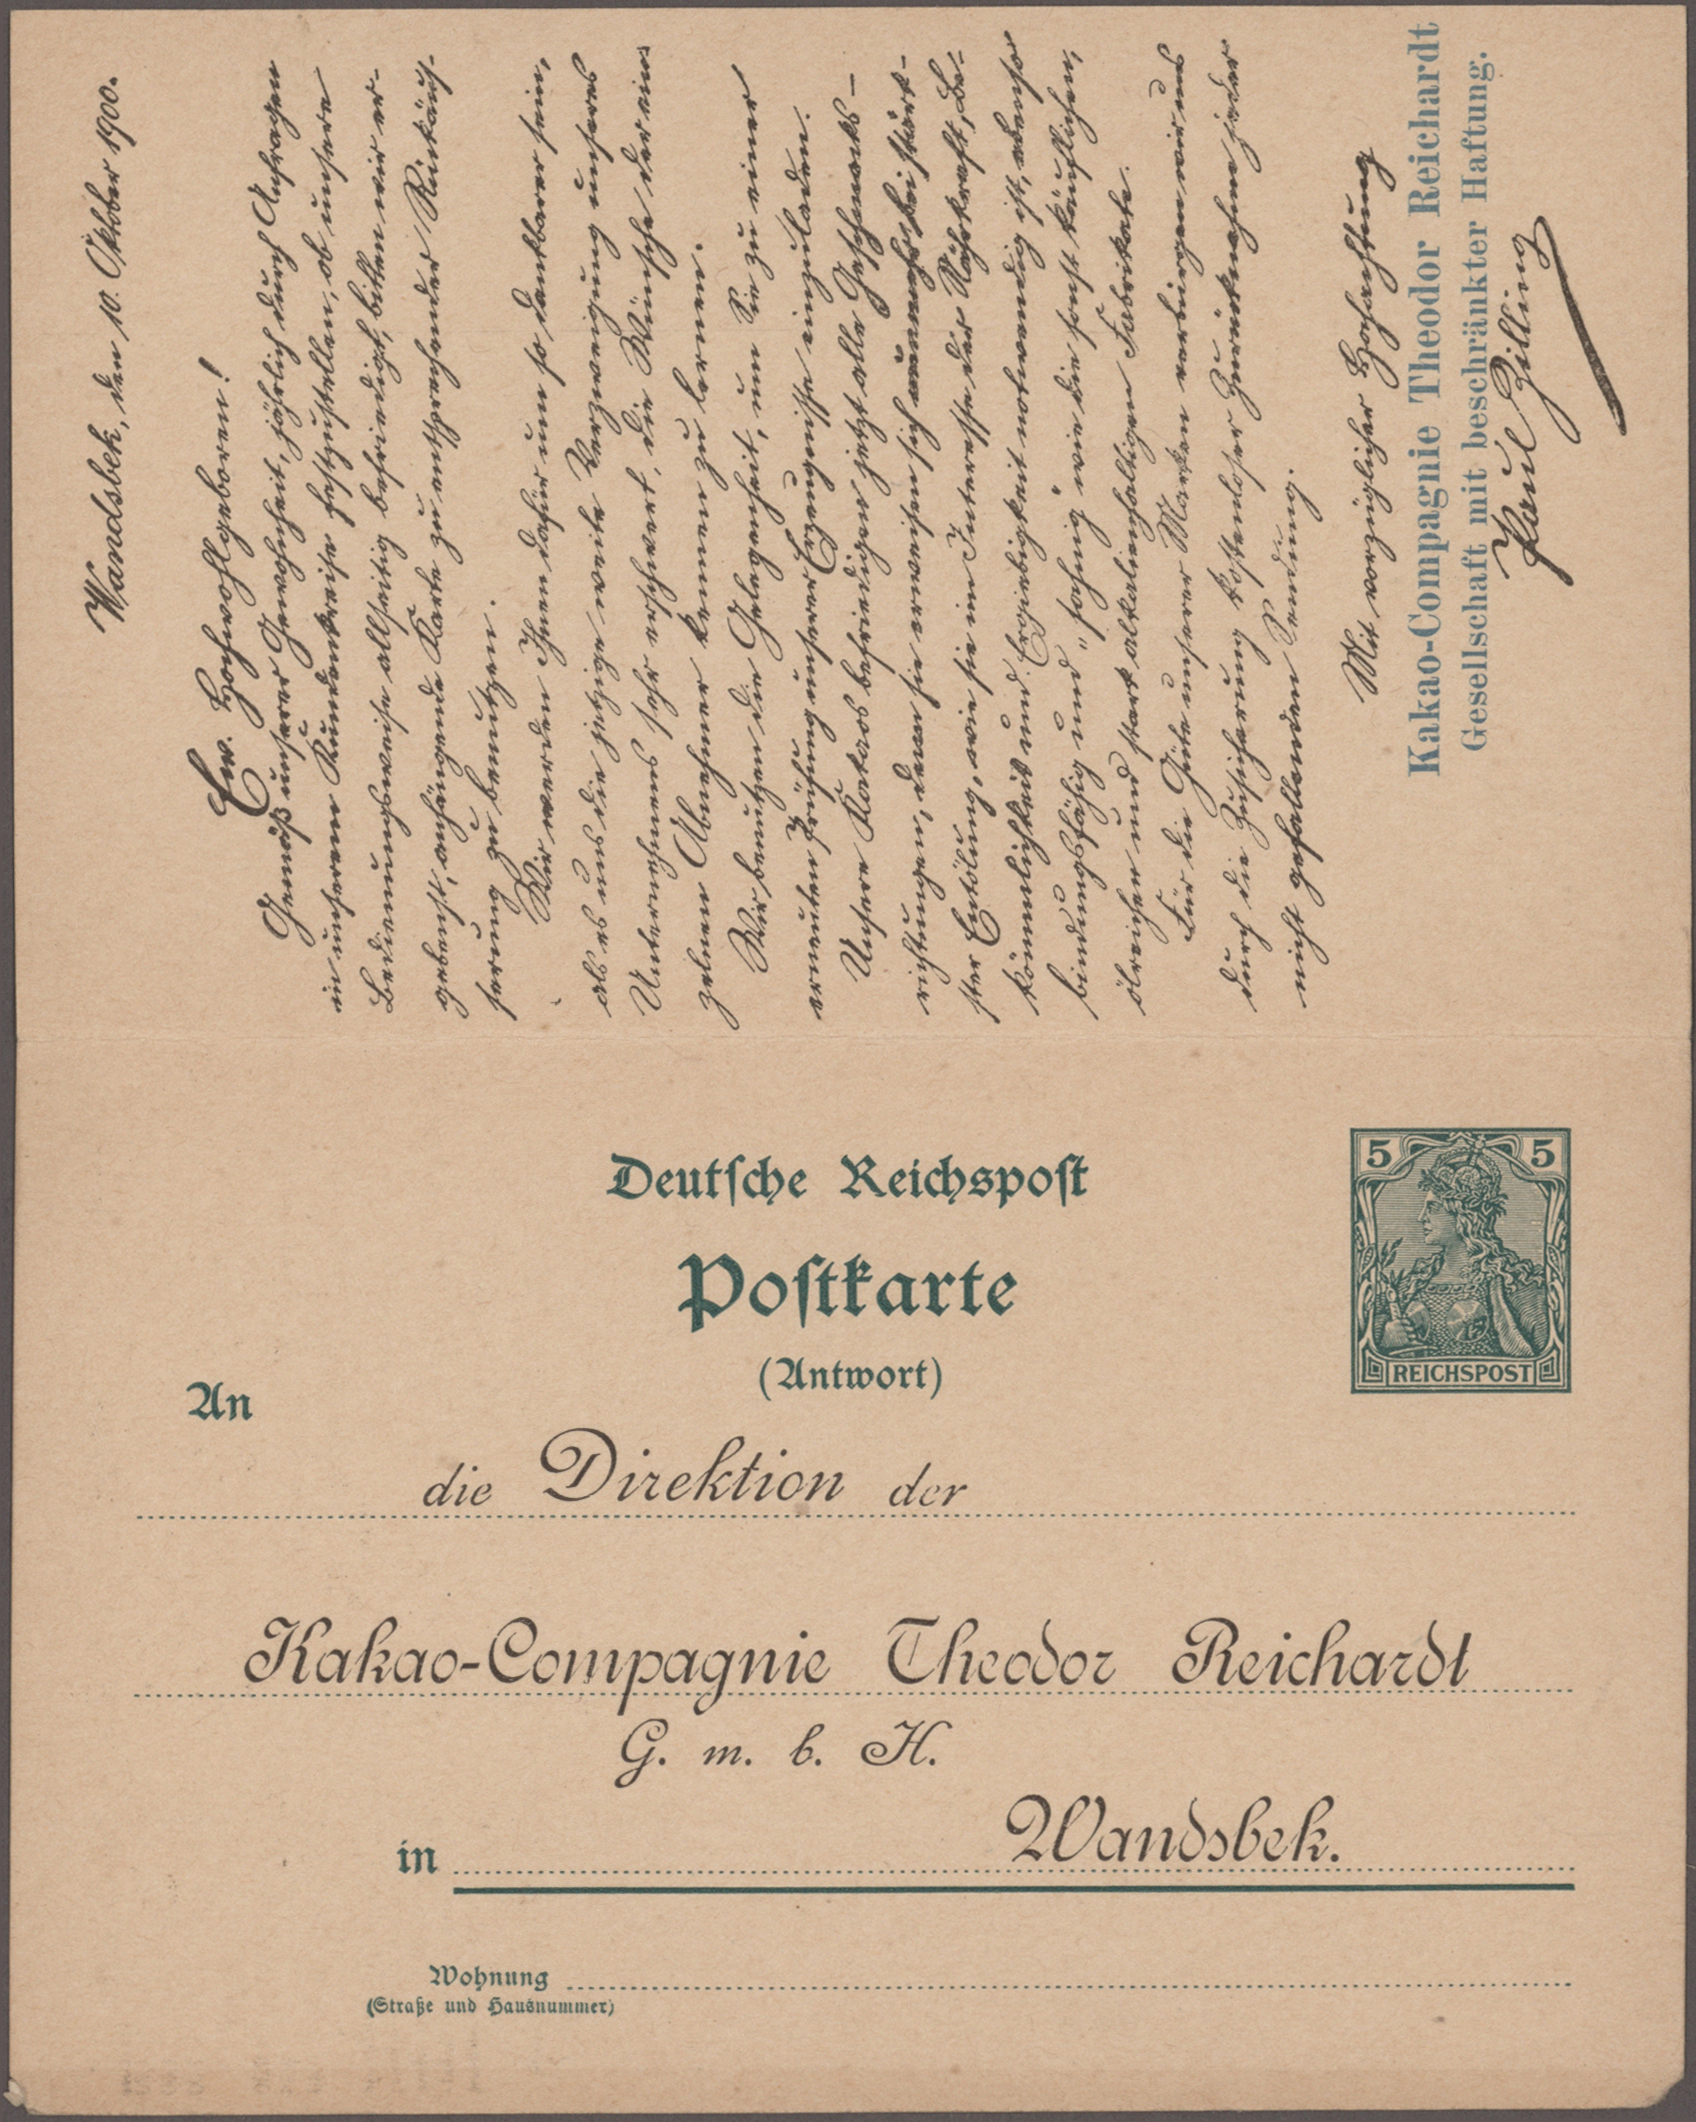 Wandsbek, den 10. Oktober 1900.
Ew. Hochwohlgeboren!
Gemäß unserer Gewohnheit, jährlich durch Anfragen
in unserem Kundenkreise festzustellen, ob unsere
Bedienungsweise allseitig befriedigt, bitten wir er-
gebenst, anhängende Karte zu entsprechender Rückäuß-
serung zu benutzen.
Wir werden Ihnen dafür um so dankbarer sein,
als es uns die jetzige weite Verzweigung unseres
Unternehmens sehr erschwert, die Wünsche der ein-
zelnen Abnehmer kennen zu lernen.
Wir benutzen die Gelegenheit, um Sie zu einer
erneuten Prüfung unserer Erzeugnisse einzuladen.
Unsere Kakaos befriedigen jetzt alle Geschmacks-
richtungen, denn sie erweisen sich bei stärk-
ster Entölung, wie sie im Interesse der Nährkraft, Be-
kömmlichkeit und Ergiebigkeit notwendig ist, ebenso
bindungsfähig und „sahnig" wie die sonst käuflichen,
ölreichen und stark alkalienhaltigen Fabrikate.
Für die Güte unserer Marken verbürgen wir uns
durch die Zusicherung kostenloser Zurücknahme jeder
nicht gefallenden Sendung.
Mit vorzüglicher Hochachtung
Kakao-Compagnie Theodor Reichardt
Gesellschaft mit beschränkter Haftung.
Paul Zilling
Deutsche Reichspost
Postkarte
(Antwort)
5 5
REICHSPOST
An
die Direktion der
Kakao-Compagnie Theodor Reichardt
G. m. b. H.
in Wandsbek.
Wohnung
(Straße und Hausnummer)